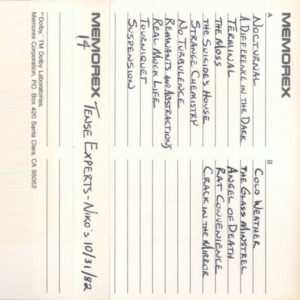 MEMOREX
A
B
NOCTURNAL
A DIFFERENCE IN THE DARK
TERMINAL
THE MOSS
THE SUICIDE'S HOUSE
STRANGE CHEMISTRY
NO TURBULENCE
REMNANTS AND ABSTRACTIONS
REAL MOCK LIFE
TOURNIQUET
SUSPENSION
COLD WEATHER
THE GLASS MINSTREL
ANGEL OF DEATH
RAT CONVENIENCE
CRACK IN THE MIRROR
MEMOREX
14
TENSE EXPERTS - NIKO'S 10/31/82
MEMOREX
"Dolby," TM Dolby Laboratories.
Memorex Corporation, P.O. Box 420 Santa Clara, CA 95052